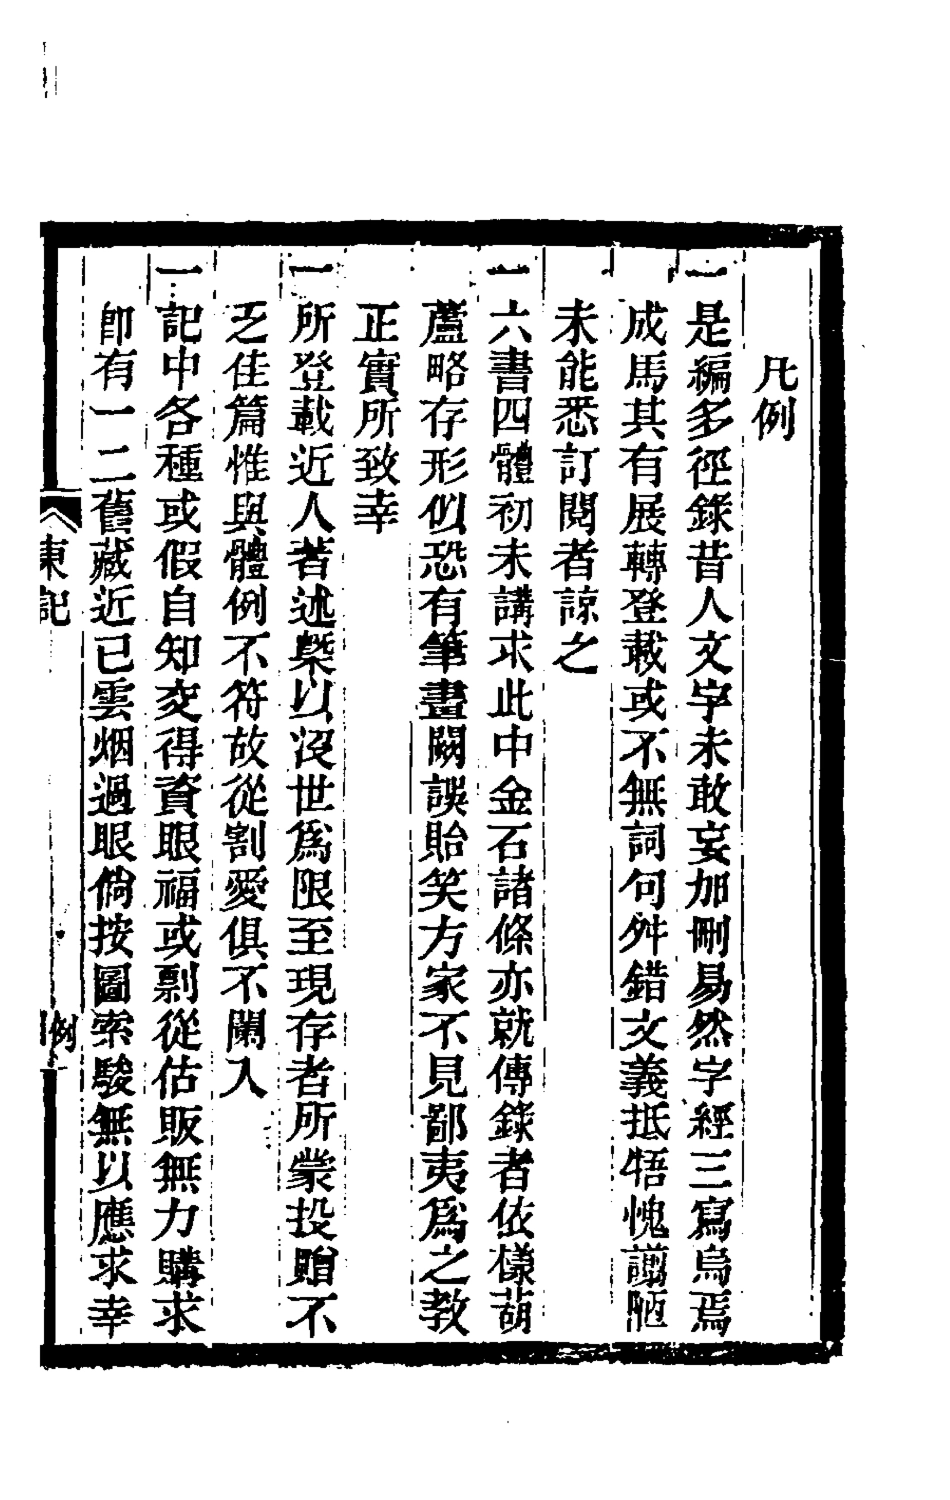 凡例
一是編多徑錄昔人文字未敢妄加刪易然字經三寫烏焉
成馬其有展轉登載或不無詞句舛錯文義抵牾愧譾陋
未能悉訂閱者諒之
一六書四體初未講求此中金石諸條亦就傳錄者依樣葫
蘆略存形似恐有筆畫闕誤貽笑方家不見鄙夷爲之教
正實所致幸
一所登載近人著述槩以沒世爲限至現存者所蒙投贈不
乏佳篇惟與體例不符故從割愛俱不闌入
一記中各種或假自知交得資眼福或剽從估販無力購求
卽有一二舊藏近已雲烟過眼倘按圖索駿無以應求幸
東記
例